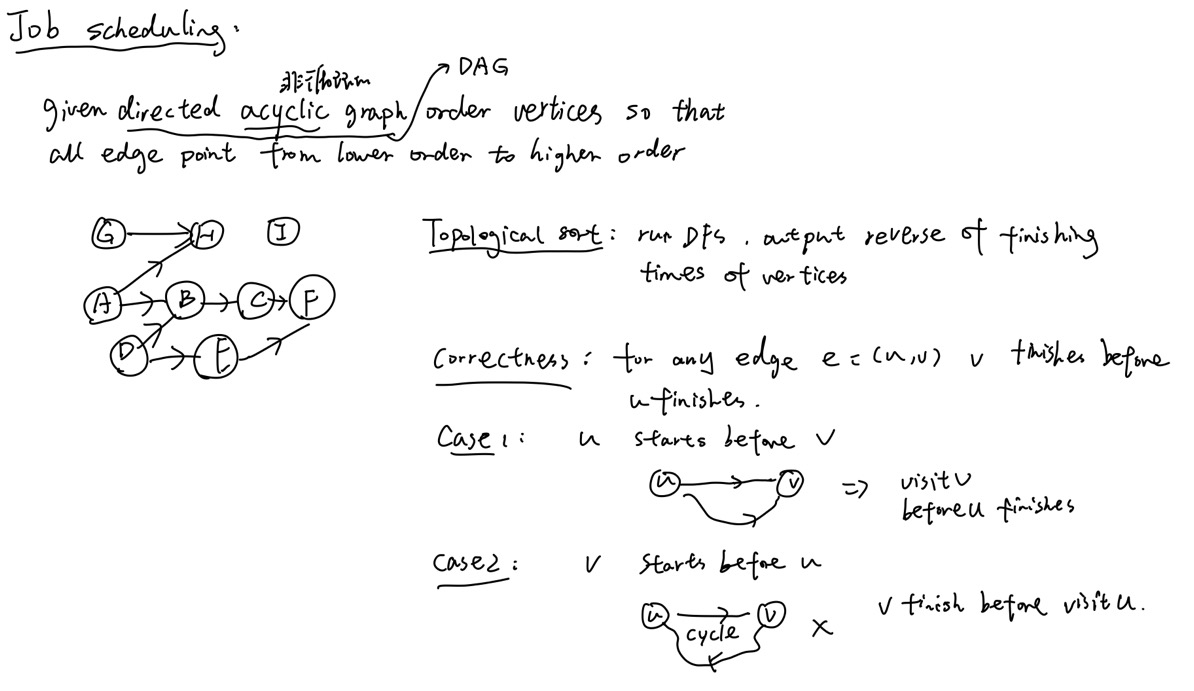 Job scheduling:
DAG
given directed acyclic graph order vertices so that
all edge point from lower order to higher order
G H I
A B C F
D E
Topological sort: run DFS, output reverse of finishing
times of vertices
Correctness: for any edge e = (u,v) v finishes before
u finishes.
Case 1: u starts before v
u v => visit v
before u finishes
Case 2: v starts before u
v finish before visit u.
u v ×
cycle